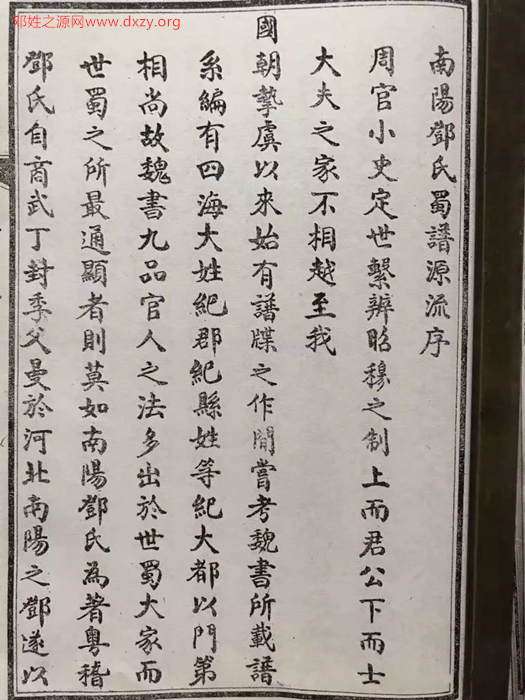 邓姓之源网www.dxzy.org
南陽鄧氏蜀譜源流序
周官小史定世繫辨昭穆之制上而君公下而士
大夫之家不相越至我
國朝摯虞以來始有譜牒之作間嘗考魏書所載譜
系編有四海大姓紀郡紀縣姓等紀大都以門第
相尚故魏書九品官人之法多出於世蜀大家而
世蜀之所最通顯者則莫如南陽鄧氏為著粵稽
鄧氏自商武丁封季父曼於河北南陽之鄧遂以